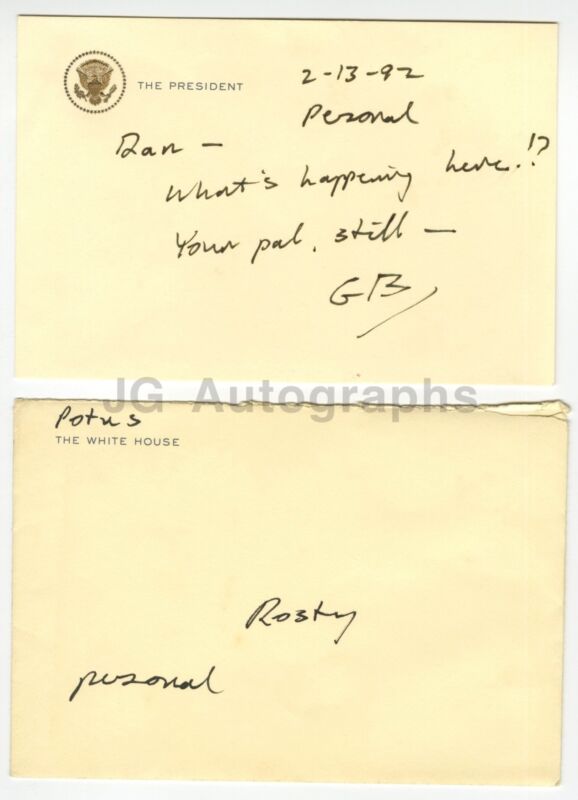 THE PRESIDENT
2-13-92
Personal
Dan —
What's happening here.!?
Your pal, still —
GB
JG Autographs
Potus
THE WHITE HOUSE
Rosty
personal